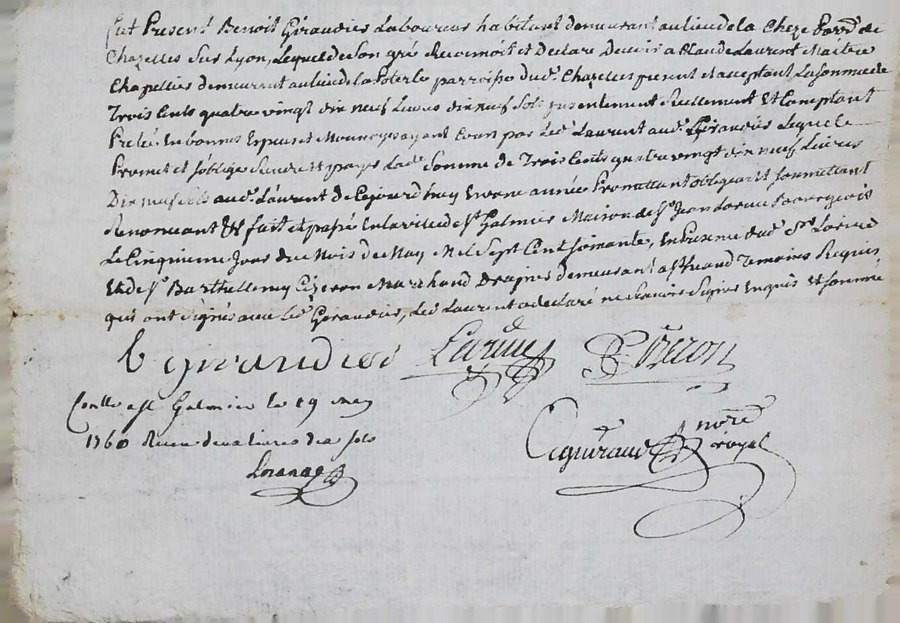 Fut Present Benoit Giraudier Laboureur habitant demeurant au lieu de la Cheze Parr. de
Chazelles Sur Lyon, Lequel de Son gré Reconnoit et Declare Devoir a Claude Laurent Maitre
Chapellier demeurant au lieu de la parroisse dud. Chazelles present et acceptant La Somme de
Trois Cents quatre vingt dix neuf Livres dix neuf Sols presentement Reellement Et Comptant
Pretée En bonnes Especes et Monnoyes ayant Cours par led. Laurent aud. Giraudier Lequel
Promet et S'oblige Rendre et payer Lad. Somme de Trois Cents quatre vingt dix neuf Livres
Dix neuf sols aud. Laurent D'aujourd'huy En une année Promettant obligeant Soumettant
Renonceant &c fait et passé En la ville de St. Galmier Maison de Sr. Jean Bourgeois
Le Cinquieme Jour du Mois de May Mil Sept Cent Soixante, En Presence dud. Sr.
Et de Sr. Barthellemy Marchand Drapier demeurant a Temoins Requis
qui ont Signés avec led. Giraudier, Led. Laurent a declaré ne Scavoir Signer Enquis Et Sommé
b giraudier
Conllé a St Galmier le 19 may
1760 Receu deux livres dix sols
nore
royal